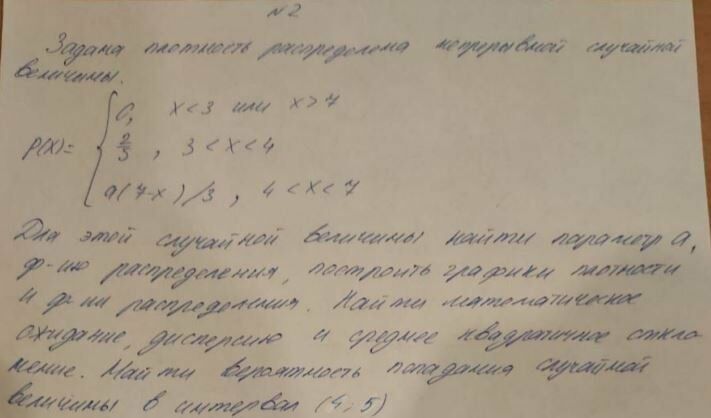 №2
Задана плотность распределения непрерывной случайной
величины.
p(x)= { 0, x<3 или x>7
2/3, 3<x<4
a(7-x)/3, 4<x<7
Для этой случайной величины найти параметр a,
ф-ию распределения, построить графики плотности
и ф-ии распределения. Найти математическое
ожидание, дисперсию и среднее квадратичное откло-
нение. Найти вероятность попадания случайной
величины в интервал (4; 5)